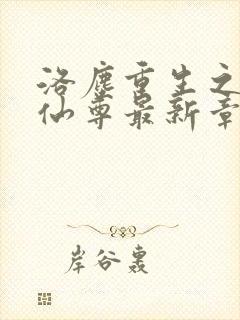 洛尘重生之
仙尊最新章
岸谷轰